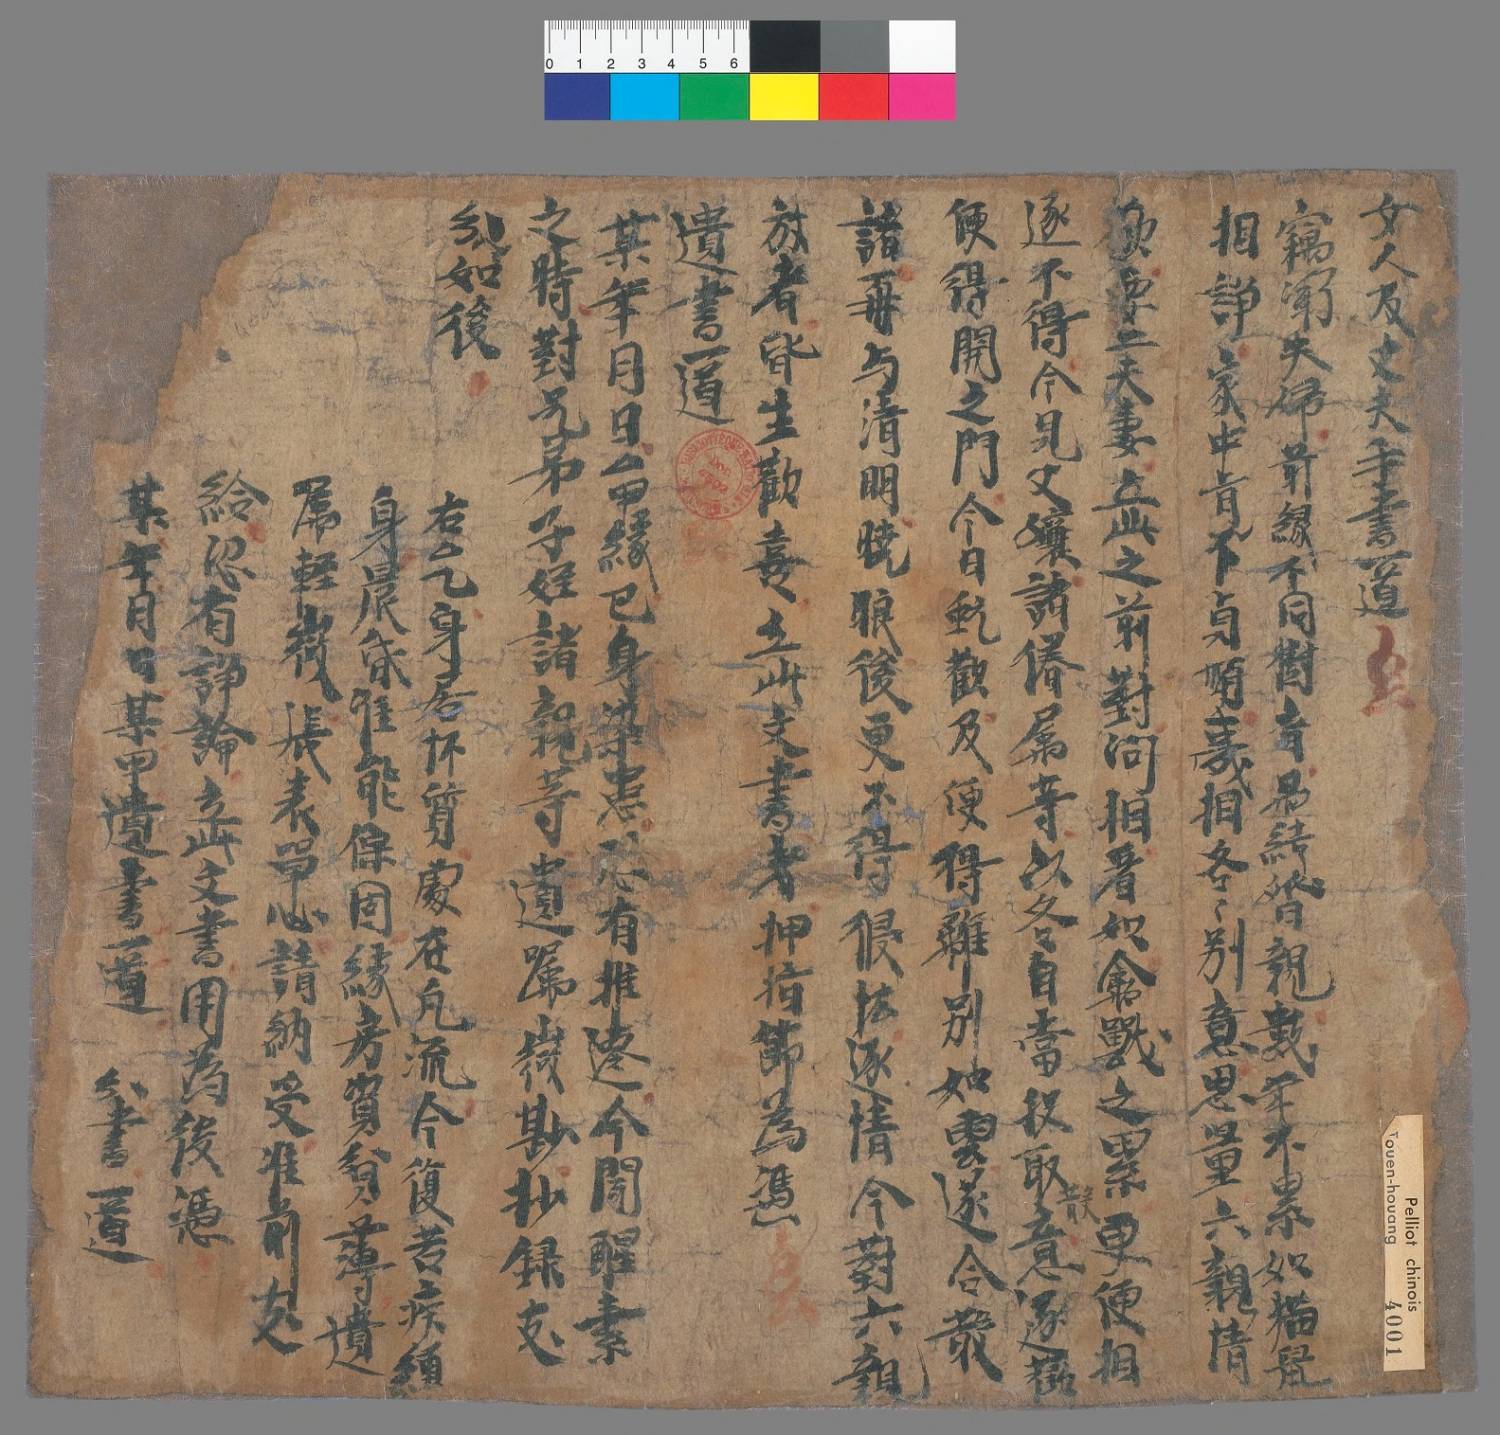 女人及丈夫手書一道
竊聞夫婦前緣不同樹者易結婚親數年不累如猫鼠
相諍家中肯不貞順義相各々別意思量六親情
要二夫妻立此之前對問相看如禽獸之累更便相
逐不得今見父孃諸眷屬等以各自當投取散意逐歡
便得開之門今日軋歡及便得離別如雲遂合散
諸再与清明曉眼後更不得侵怯逐情今對六親
放者皆生歡喜立此文書者押指節為憑
遺書一道
某年月日厶甲緣已身染患恐有推遷今聞醒素
之時對兄弟子姪諸親等遺囑微勘抄録支
分如後
右厶乙身居怀質處在凡流今復苦疾纏
身晨昏准能保固緣房資貧薄遺
属輕微張表單心請納受准前支
給恐有諍論立此文書用為後憑
某年月日某甲遺書一道 分書一道
Pelliot chinois 4001
Touen-houang
0 1 2 3 4 5 6